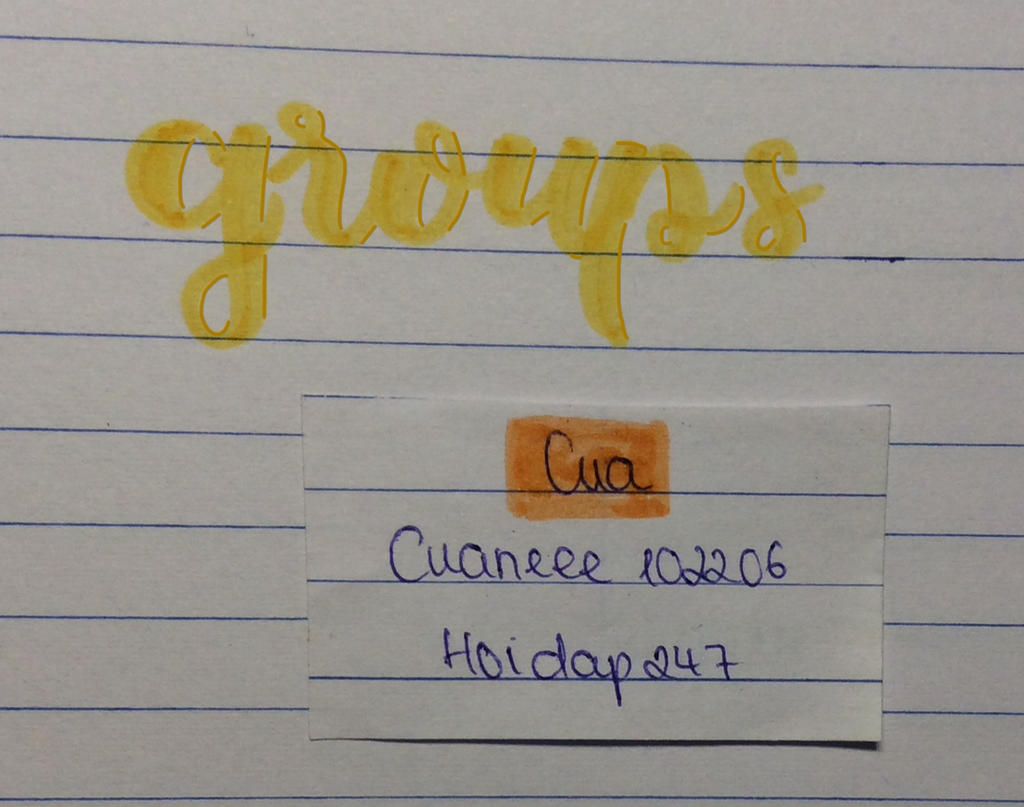 groups
Cua
Cuaneee 102206
Hoidap247